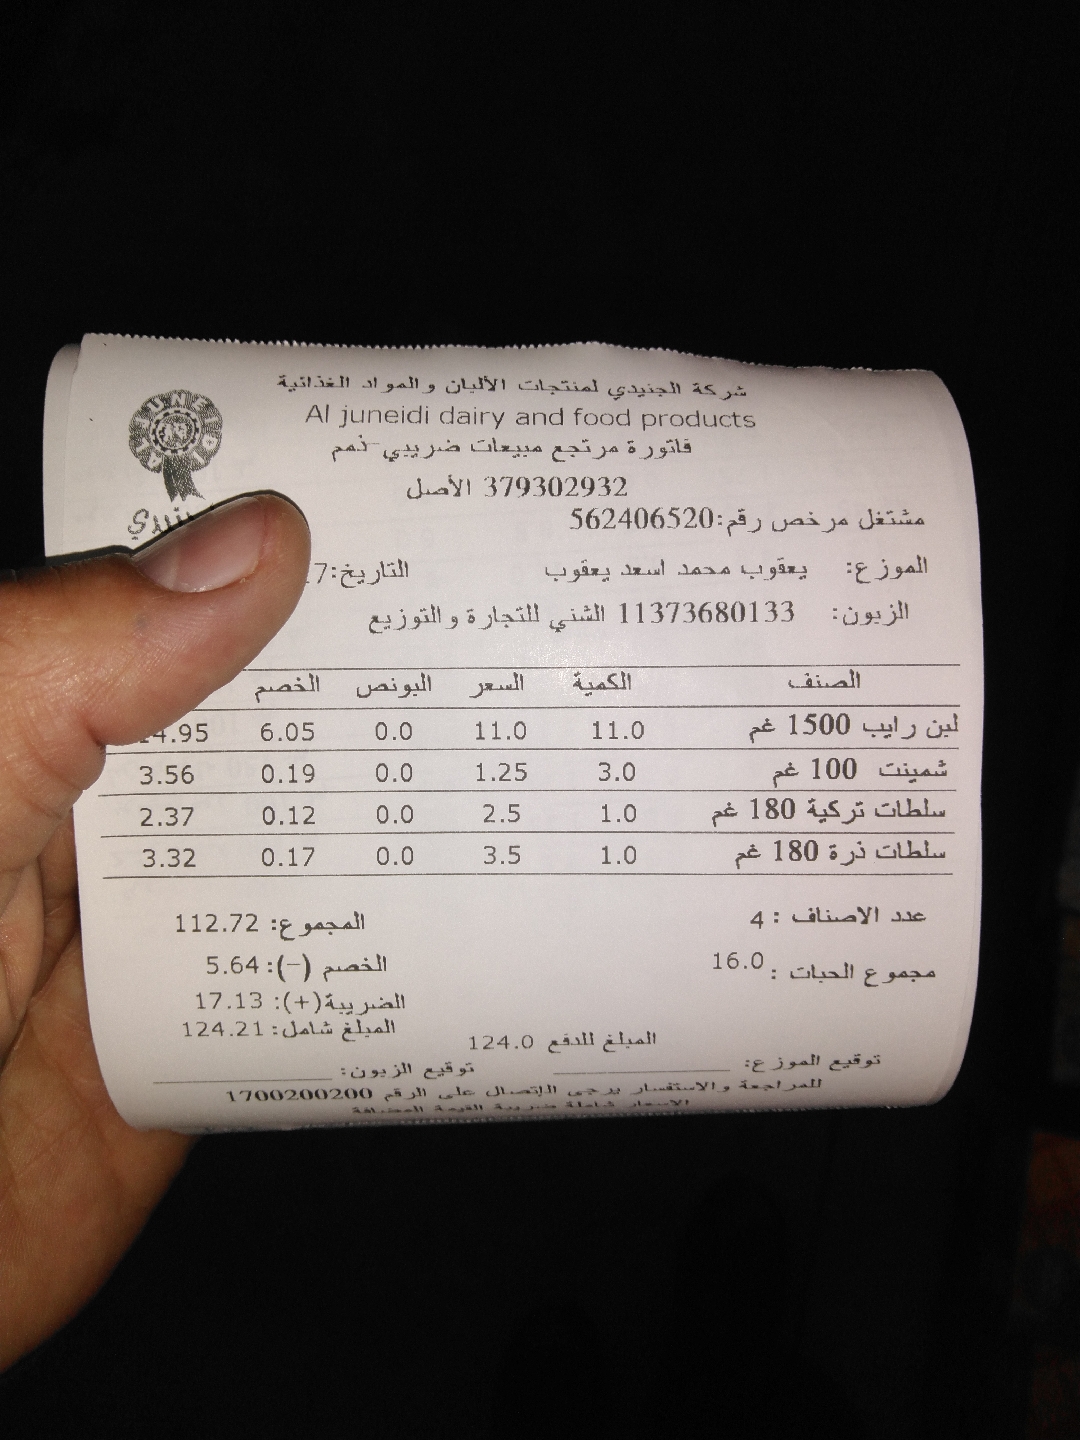 شركة الجنيدي لمنتجات الألبان والمواد الغذائية
Al juneidi dairy and food products
فاتورة مرتجع مبيعات ضريبي-ذمم
379302932 الأصل
مشتغل مرخص رقم:562406520
الموزع: يعقوب محمد اسعد يعقوب التاريخ:
الزبون: 11373680133 الشني للتجارة والتوزيع
الصنف الكمية السعر البونص الخصم
لبن رايب 1500 غم 11.0 11.0 0.0 6.05
شمينت 100 غم 3.0 1.25 0.0 0.19 3.56
سلطات تركية 180 غم 1.0 2.5 0.0 0.12 2.37
سلطات ذرة 180 غم 1.0 3.5 0.0 0.17 3.32
عدد الاصناف : 4 المجموع: 112.72
مجموع الحبات : 16.0 الخصم (-): 5.64
الضريبة(+): 17.13
المبلغ شامل: 124.21
المبلغ للدفع 124.0
توقيع الموزع: توقيع الزبون:
للمراجعة والاستفسار يرجى الإتصال على الرقم 1700200200
الاسعار شاملة ضريبة القيمة المضافة